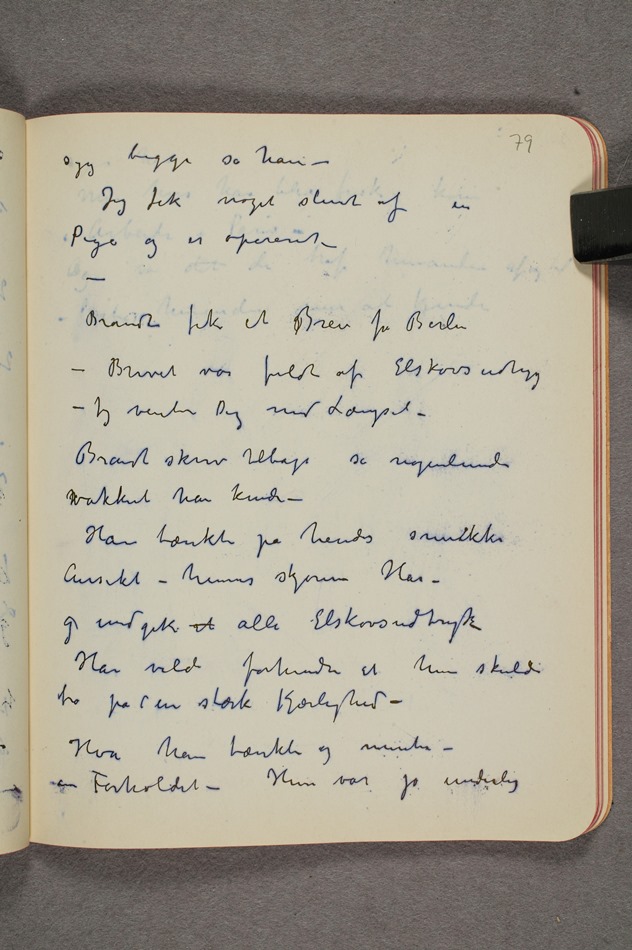 79
syg begge sa han –
Jeg fik noget slemt af en
Pige og er opereret –
—
Brandt fik et Brev fra Berlin
– Brevet var fuldt af Elskovsudtryg
– Jeg venter Dig med Længsel –
Brandt skrev tilbage så nogenlunde
vakkert han kunde –
Han tænkte på hendes smukke
Ansikt – hennes skjønne Hår –
og undgik alle Elskovsudtryk
Han vilde forhindre at hun skulde
tro på en stærk Kjærlighed –
Hva han tænkte og mente –
om Forholdet – Hun var jo underlig